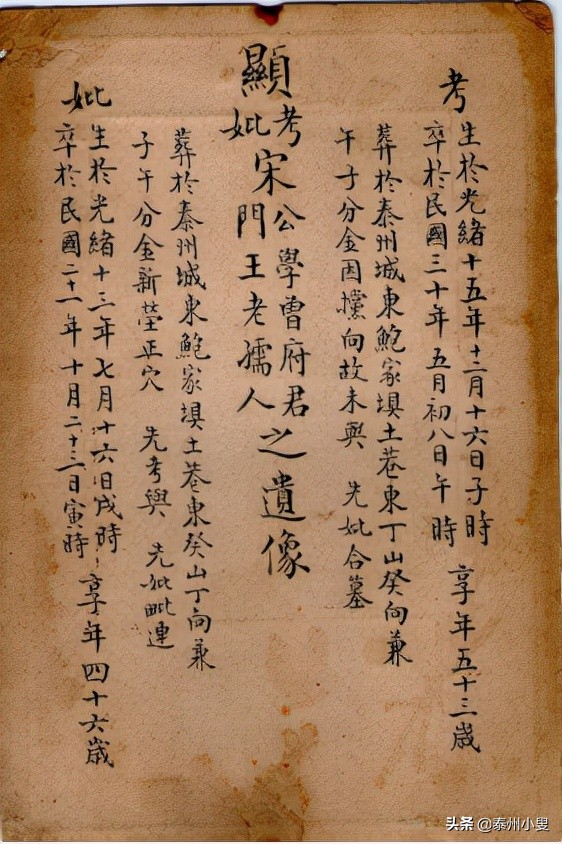 考
生於光緒十五年十二月十六日子時
卒於民國三十年五月初八日午時
享年五十三歲
葬於泰州城東鮑家垻土巷東丁山癸向兼
午子分金因攩向故未與 先妣合墓
顯
考 妣
宋
公學曾府君
門王老孺人
之遺像
葬於泰州城東鮑家垻土巷東癸山丁向兼
子午分金新塋正穴 先考與 先妣毗連
妣
生於光緒十三年七月十六日戌時
卒於民國二十一年十月二十三日寅時
享年四十六歲
头条 @泰州小叟